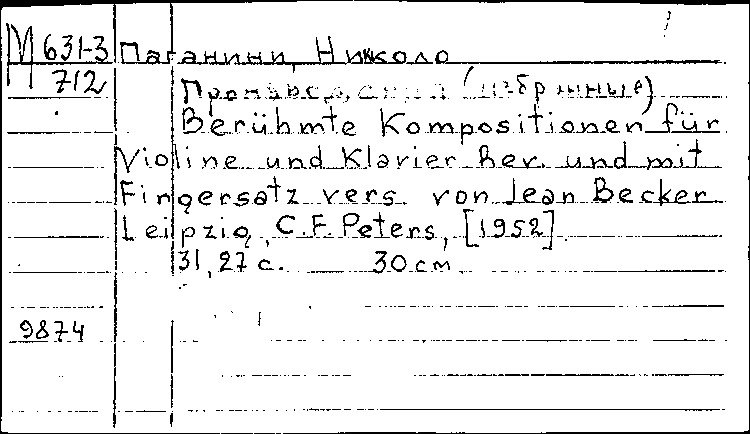 М 631-3 Паганини, Никколо
712
Произведения (избранные)
Berühmte Kompositionen für
Violine und Klavier Rev. und mit
Fingersatz vers. von Jean Becker
Leipzig, C.F. Peters, [1952].
31, 27 с. 30 см
9874